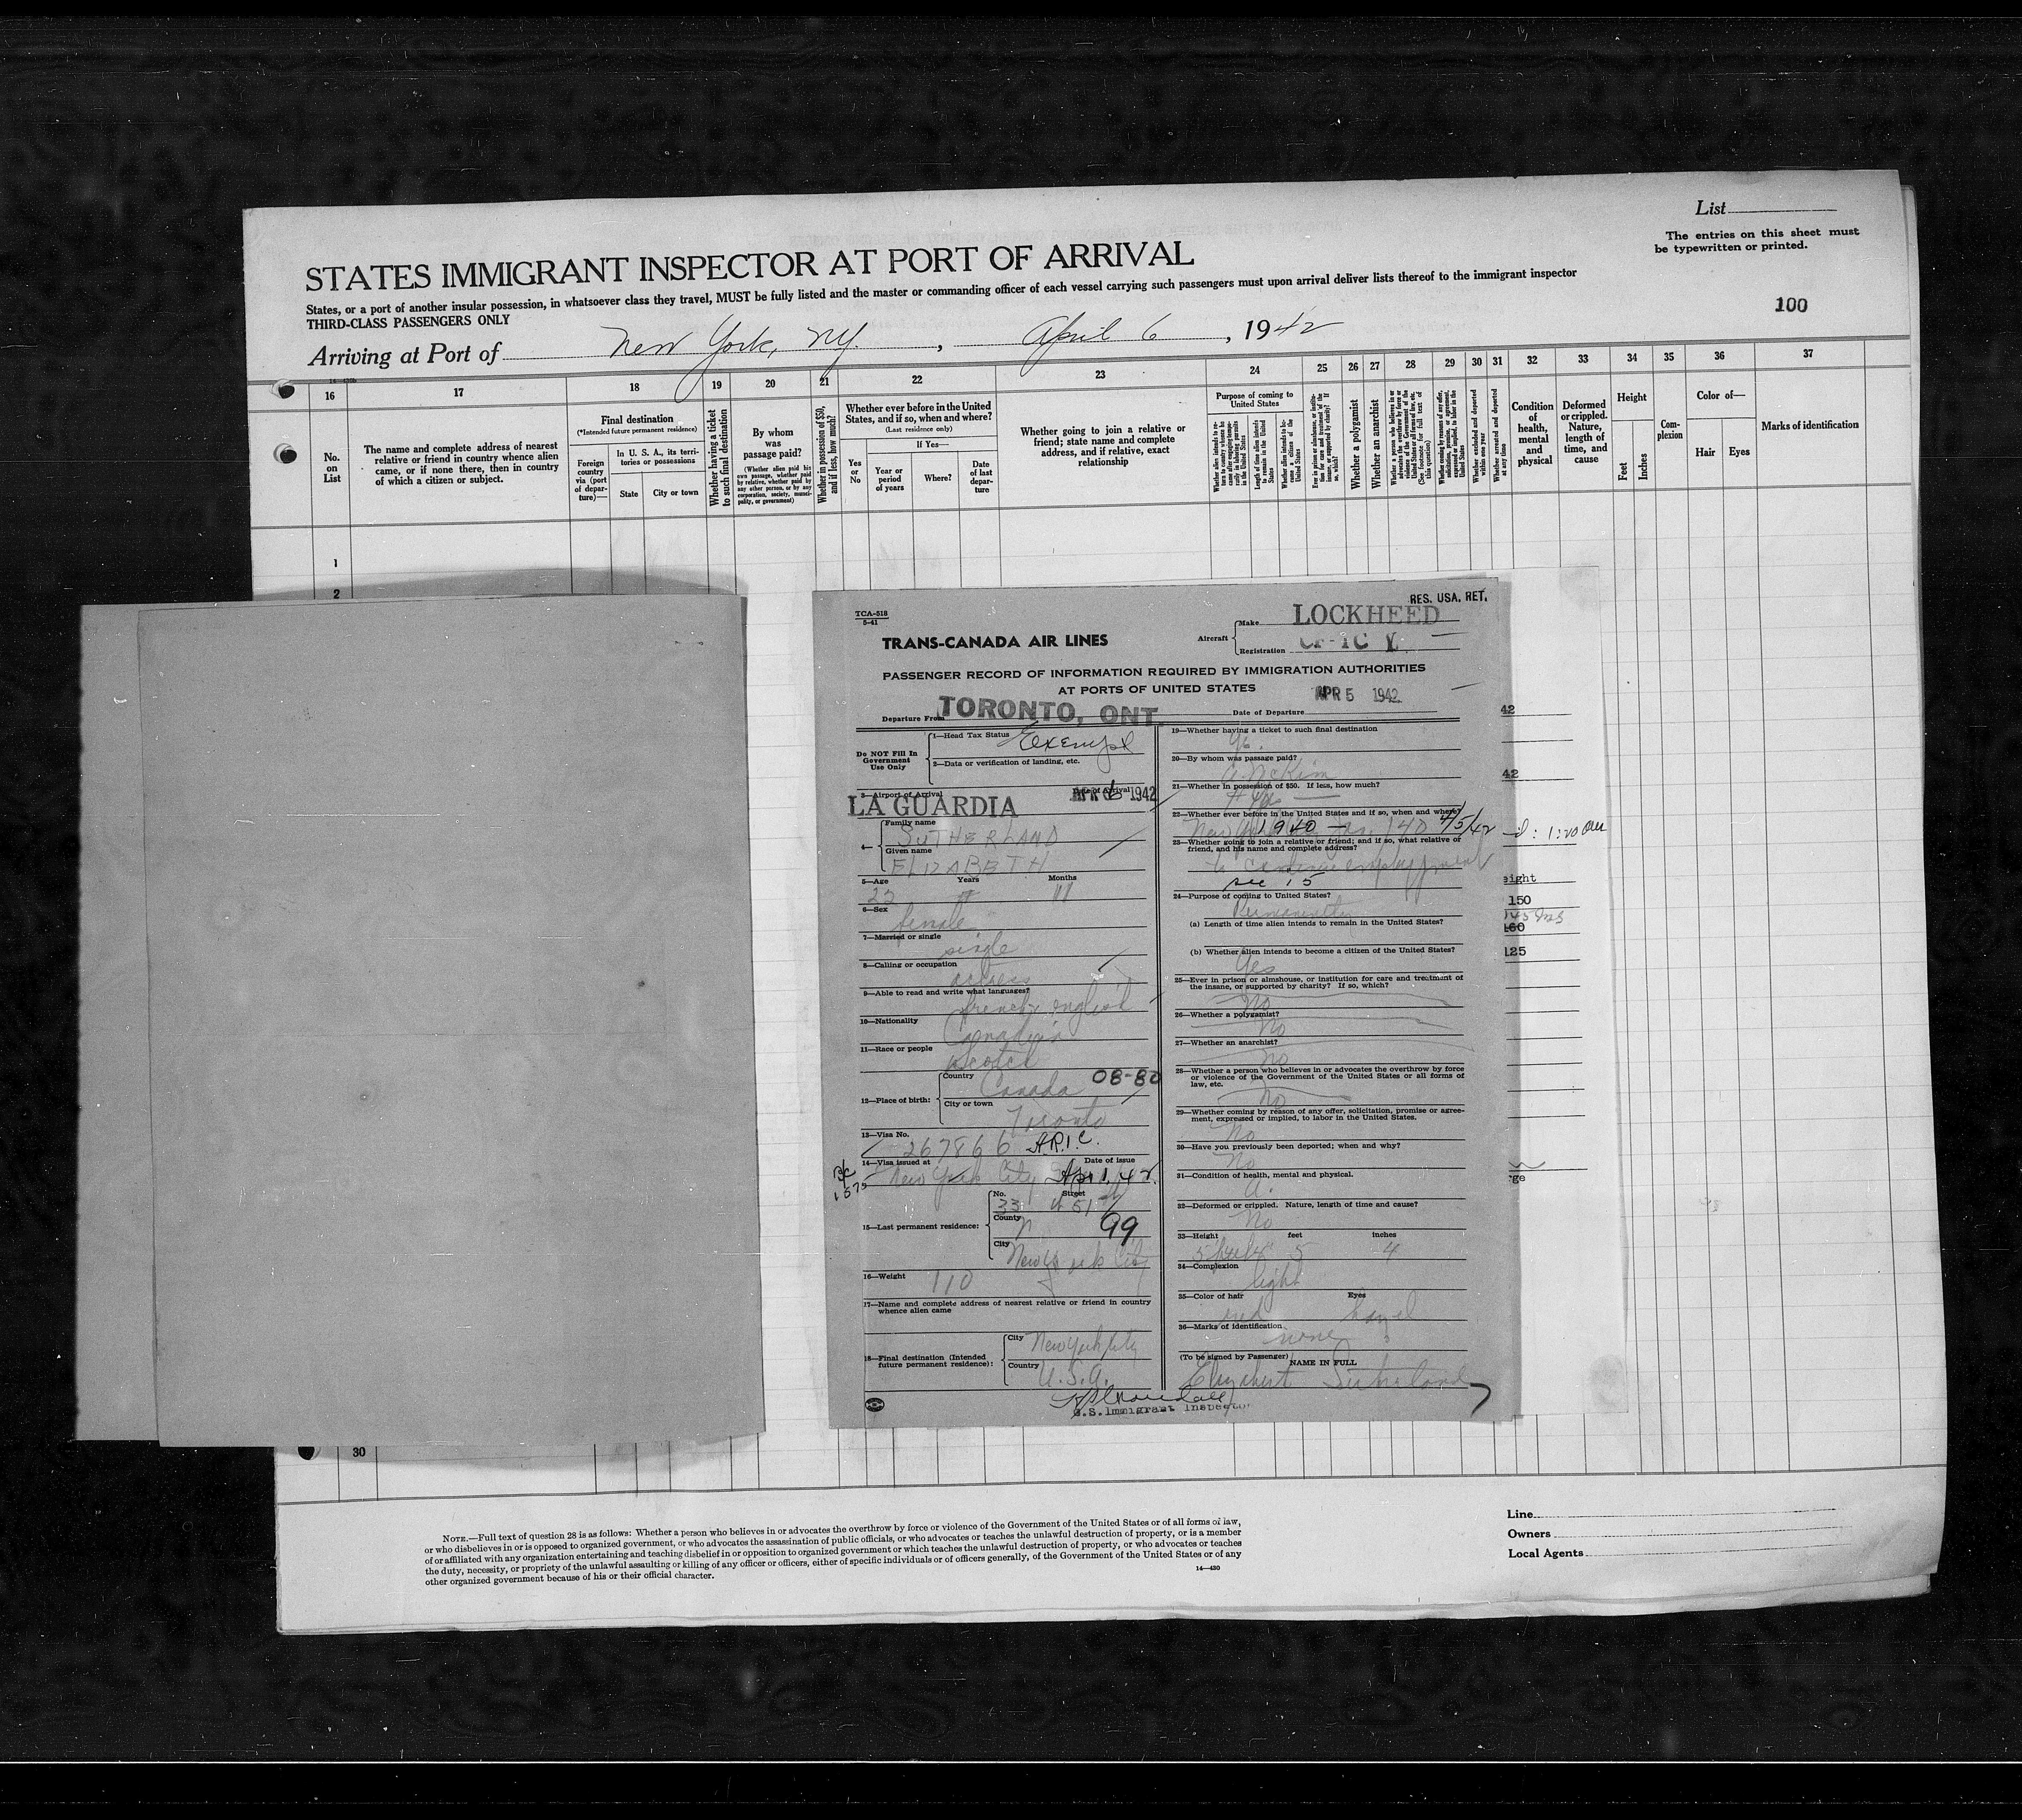 List
The entries on this sheet must
be typewritten or printed.
STATES IMMIGRANT INSPECTOR AT PORT OF ARRIVAL
States, or a port of another insular possession, in whatsoever class they travel, MUST be fully listed and the master or commanding officer of each vessel carrying such passengers must upon arrival deliver lists thereof to the immigrant inspector
THIRD-CLASS PASSENGERS ONLY
100
Arriving at Port of New York, NY. , April 6 , 1942
16 17 18 19 20 21 22 23 24 25 26 27 28 29 30 31 32 33 34 35 36 37
No. on List
The name and complete address of nearest
relative or friend in country whence alien
came, or if none there, then in country
of which a citizen or subject.
Final destination
(*Intended future permanent residence)
Foreign country via (port of departure)—
In U. S. A., its territories or possessions
State
City or town
Whether having a ticket to such final destination
By whom was passage paid?
(Whether alien paid his own passage, whether paid by relative, whether paid by any other person, or by any corporation, society, municipality, or government)
Whether in possession of $50, and if less, how much?
Whether ever before in the United
States, and if so, when and where?
(Last residence only)
Yes or No
If Yes—
Year or period of years
Where?
Date of last departure
Whether going to join a relative or
friend; state name and complete
address, and if relative, exact
relationship
Purpose of coming to
United States
Length of time alien intends to remain in the United States
Whether alien intends to become a citizen of the United States
Whether a polygamist
Whether an anarchist
Whether arrested and deported at any time
Condition of health, mental and physical
Deformed or crippled. Nature, length of time, and cause
Height
Feet
Inches
Complexion
Color of—
Hair
Eyes
Marks of identification
1
2
TCA-518
5-41
RES. USA. RET.
TRANS-CANADA AIR LINES
Aircraft
Make LOCKHEED
Registration
PASSENGER RECORD OF INFORMATION REQUIRED BY IMMIGRATION AUTHORITIES
AT PORTS OF UNITED STATES
Departure From TORONTO, ONT.
Date of Departure APR 5 1942
Do NOT Fill In
Government
Use Only
1—Head Tax Status Exempt
2—Data or verification of landing, etc.
3—Airport of Arrival LA GUARDIA
Date of Arrival APR 6 1942
4—
Family name SUTHERLAND
Given name ELIZABETH
5—Age Years Months
22
6—Sex female
7—Married or single single
8—Calling or occupation
9—Able to read and write what languages? french english
10—Nationality Canadian
11—Race or people Scotch
12—Place of birth:
Country Canada 08-80
City or town Toronto
13—Visa No. 267866 A.R.I.C.
14—Visa issued at New York City
Date of issue Apr 1, 42
15—Last permanent residence:
No. 33 Street W 51
County 99
City New York City
16—Weight 110
17—Name and complete address of nearest relative or friend in country
whence alien came
18—Final destination (Intended
future permanent residence):
City New York City
Country U.S.A.
U.S. Immigrant Inspector
19—Whether having a ticket to such final destination
20—By whom was passage paid?
21—Whether in possession of $50. If less, how much?
22—Whether ever before in the United States and if so, when and where?
New York 1940 4/5/42
23—Whether going to join a relative or friend; and if so, what relative or
friend, and his name and complete address?
to continue employment
sec 15
24—Purpose of coming to United States?
Permanently
(a) Length of time alien intends to remain in the United States?
(b) Whether alien intends to become a citizen of the United States?
Yes
25—Ever in prison or almshouse, or institution for care and treatment of
the insane, or supported by charity? If so, which?
No
26—Whether a polygamist?
No
27—Whether an anarchist?
No
28—Whether a person who believes in or advocates the overthrow by force
or violence of the Government of the United States or all forms of
law, etc.
No
29—Whether coming by reason of any offer, solicitation, promise or agree-
ment, expressed or implied, to labor in the United States.
No
30—Have you previously been deported; when and why?
No
31—Condition of health, mental and physical.
32—Deformed or crippled. Nature, length of time and cause?
No
33—Height feet inches
5 4
34—Complexion
light
35—Color of hair Eyes
red hazel
36—Marks of identification
none
(To be signed by Passenger)
NAME IN FULL
Elizabeth Sutherland
42
42
1:20
eight
150
160
125
30
NOTE.—Full text of question 28 is as follows: Whether a person who believes in or advocates the overthrow by force or violence of the Government of the United States or of all forms of law,
or who disbelieves in or is opposed to organized government, or who advocates the assassination of public officials, or who advocates or teaches the unlawful destruction of property, or is a member
of or affiliated with any organization entertaining and teaching disbelief in or opposition to organized government or which teaches the unlawful destruction of property, or who advocates or teaches
the duty, necessity, or propriety of the unlawful assaulting or killing of any officer or officers, either of specific individuals or of officers generally, of the Government of the United States or of any
other organized government because of his or their official character.
14—430
Line
Owners
Local Agents